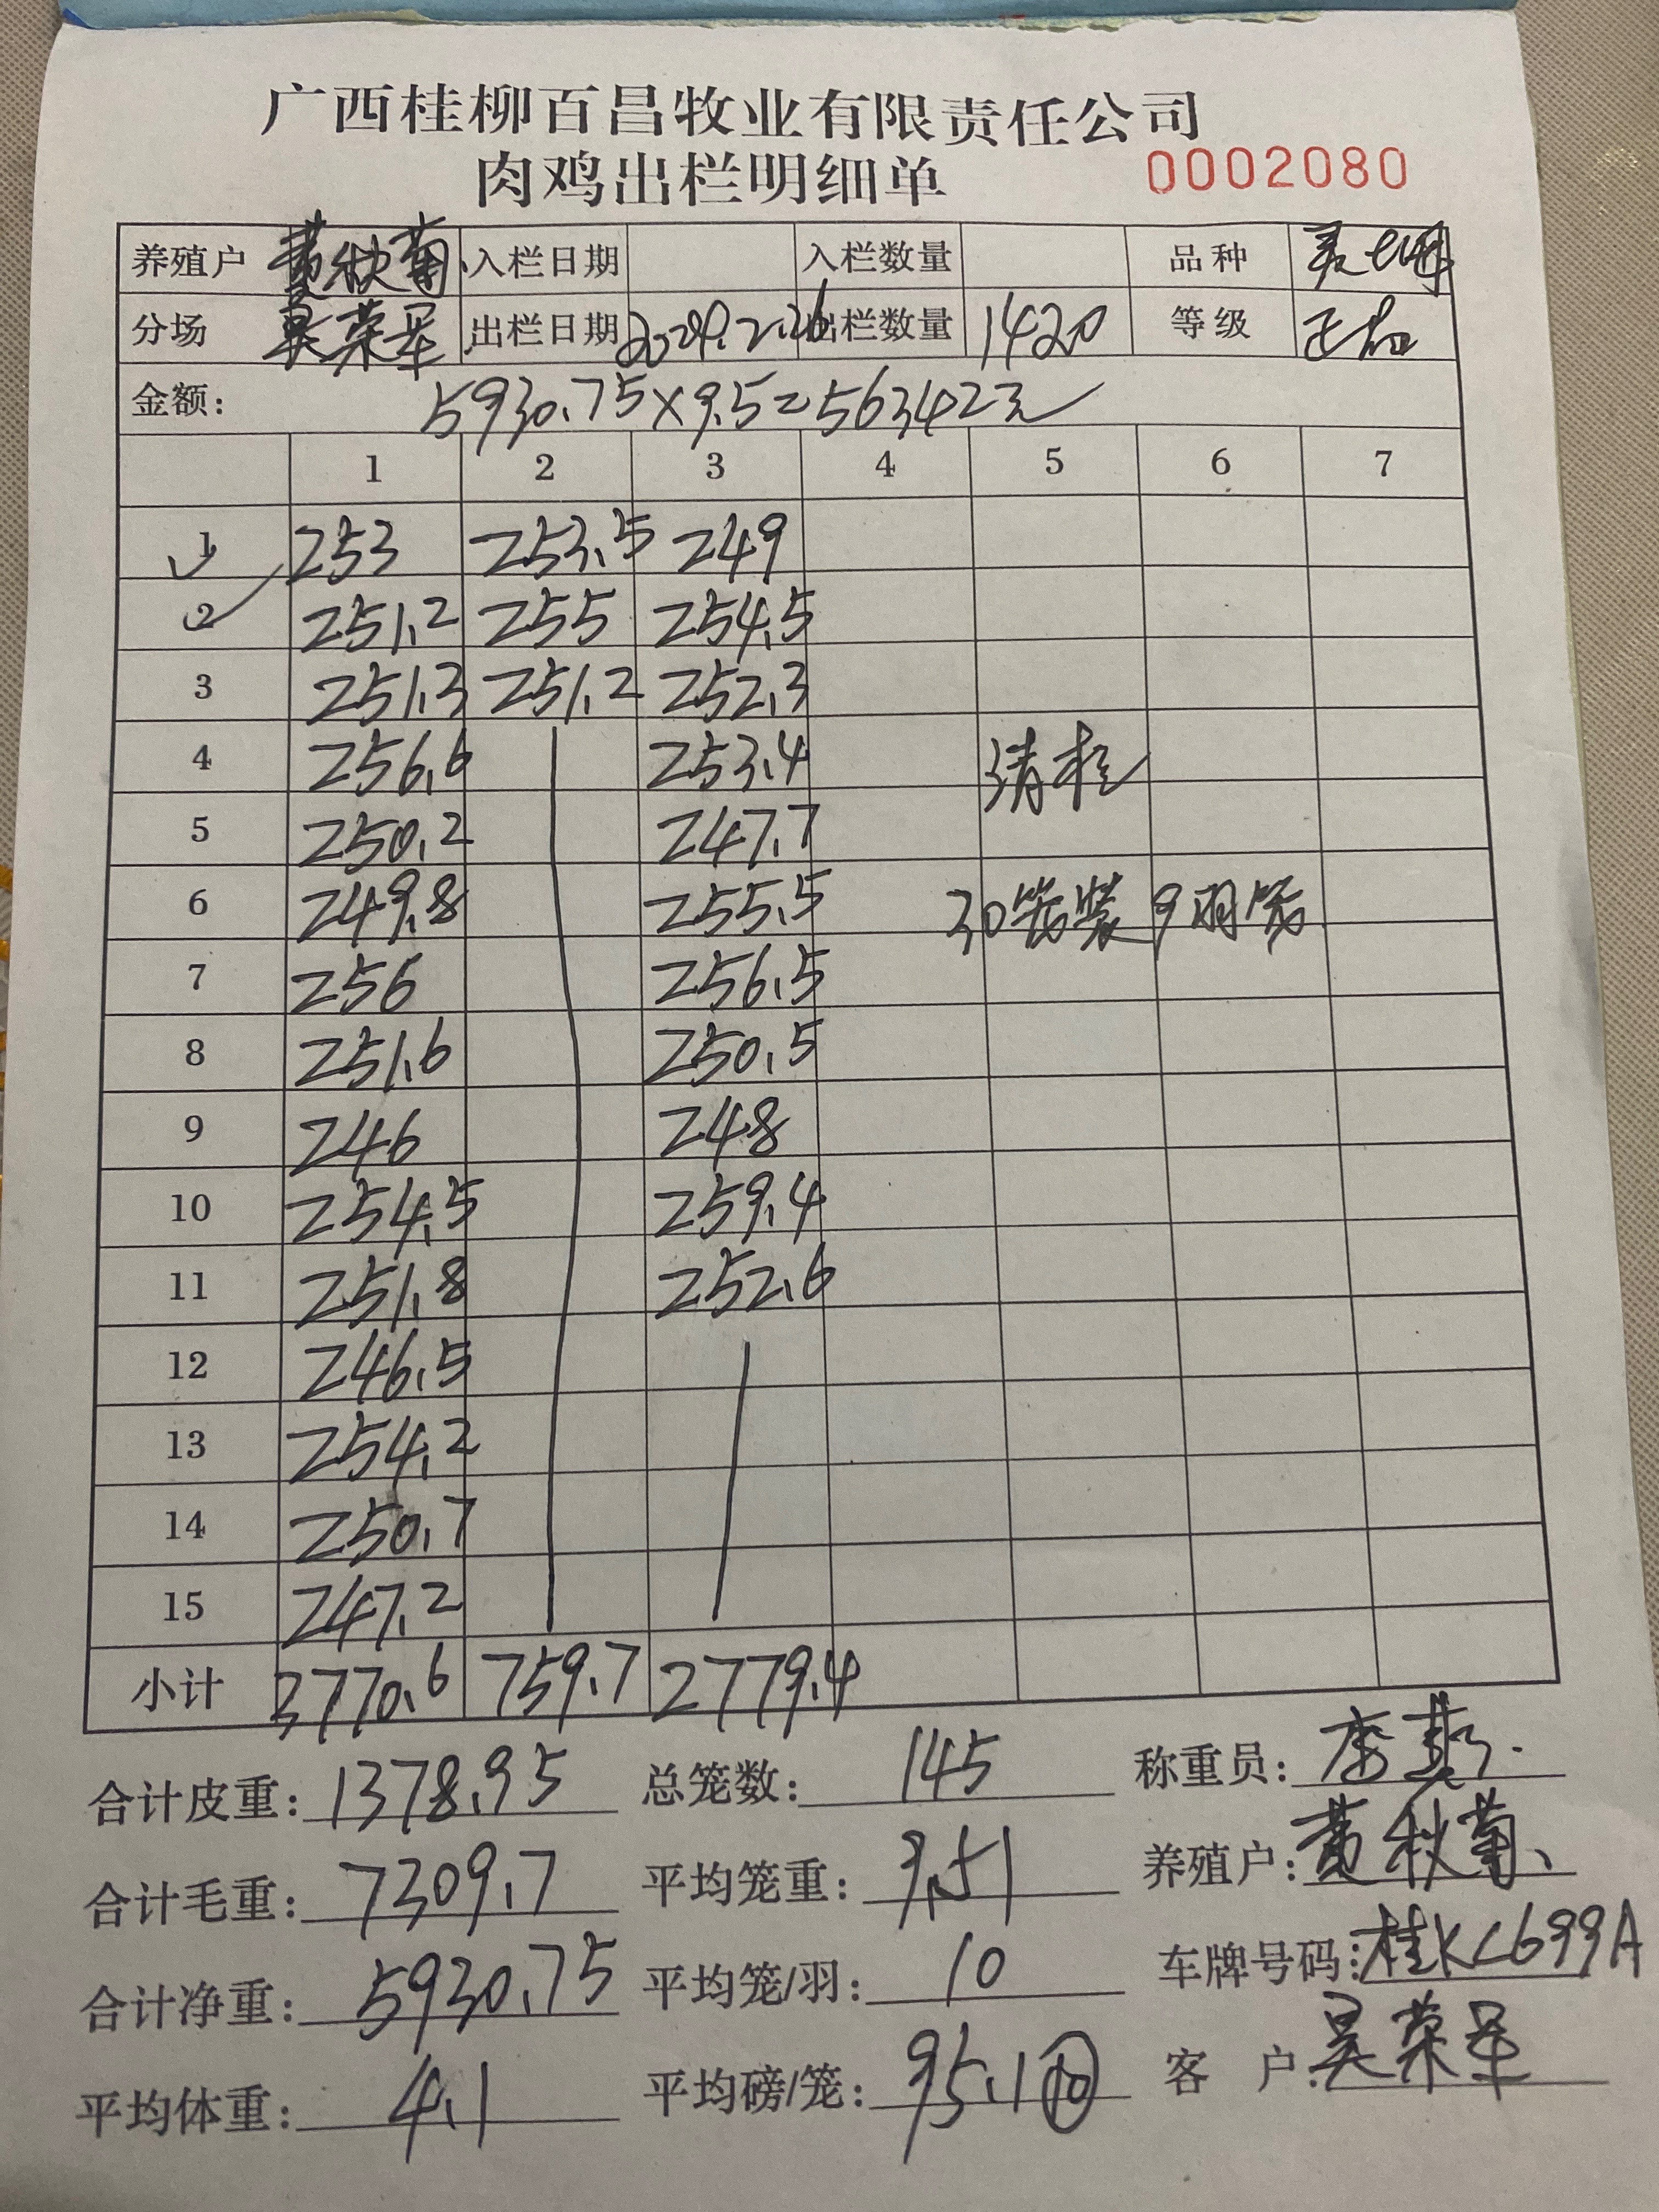 广西桂柳百昌牧业有限责任公司
肉鸡出栏明细单 0002080
养殖户 黄秋菊 入栏日期 入栏数量 品种
分场 吴荣军 出栏日期 2024.2.26 出栏数量 1420 等级 正品
金额: 5930.75×9.5=56342元
1 2 3 4 5 6 7
1 253 253.5 249
2 251.2 255 254.5
3 251.3 251.2 252.3
4 256.6 253.4 清栏
5 250.2 247.7
6 249.8 255.5 30笼装9羽笼
7 256 256.5
8 251.6 250.5
9 246 248
10 254.5 259.4
11 251.8 252.6
12 246.5
13 254.2
14 250.7
15 247.2
小计 3770.6 759.7 2779.4
合计皮重: 1378.95 总笼数: 145 称重员:
合计毛重: 7309.7 平均笼重: 9.51 养殖户: 黄秋菊
合计净重: 5930.75 平均笼/羽: 10 车牌号码: 桂KC699A
平均体重: 4.1 平均磅/笼: 95.1⑩ 客户: 吴荣军